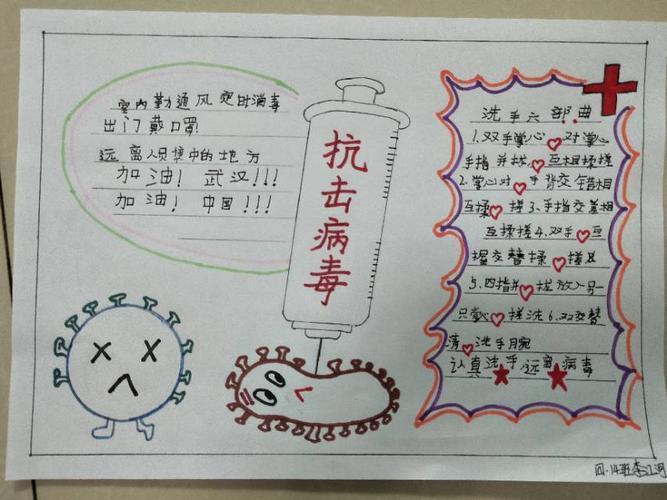 室内勤通风定时消毒
出门戴口罩!
远离人员集中的地方
加油! 武汉!!!
加油! 中国!!!
抗击病毒
洗手六部曲
1.双手掌心 对掌心
手指并拢 互相揉搓
2.掌心对 手背交错相
互揉 搓3.手指交叉相
互揉搓4.双手 互
握交替揉 搓
5.四指并 拢放入另
只掌心 搓洗6.双交替
清 洗手腕
认真洗手远离病毒
四·14班